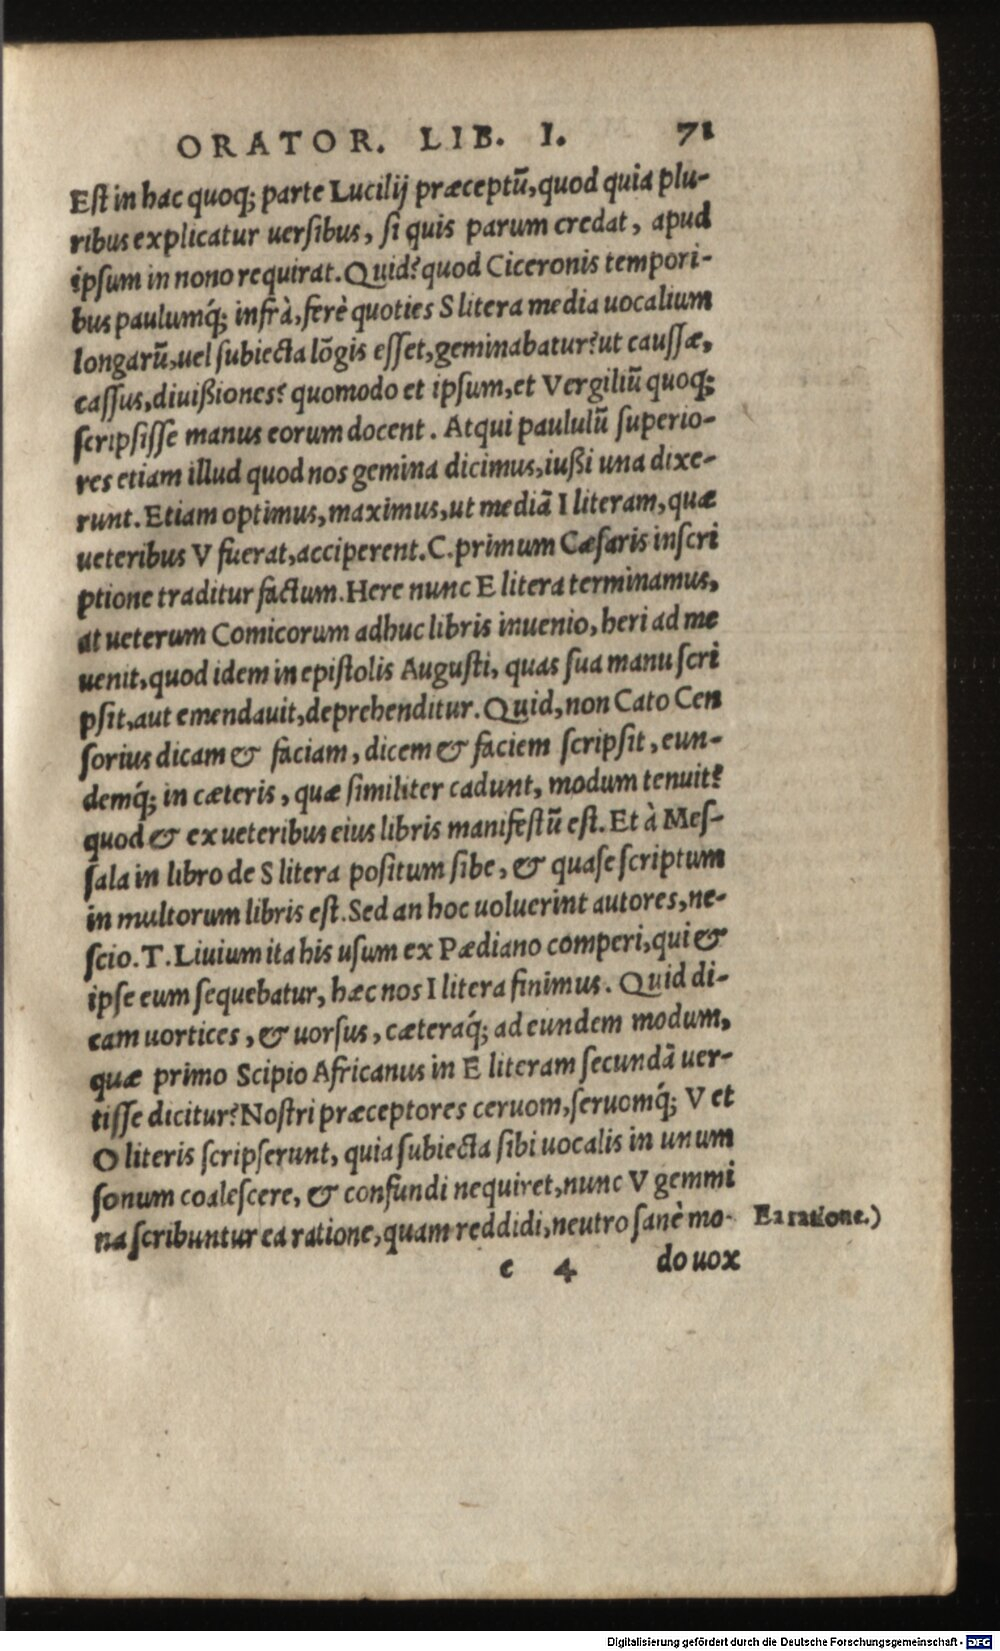 ORATOR. LIB. I. 71
Est in hac quoq; parte Lucilij præceptū, quod quia plu-
ribus explicatur uersibus, si quis parum credat, apud
ipsum in nono requirat. Quid? quod Ciceronis tempori-
bus paulumq́; infrà, ferè quoties S litera media uocalium
longarū, uel subiecta lōgis esset, geminabatur? ut caussæ,
cassus, diuißiones? quomodo et ipsum, et Vergiliū quoq;
scripsisse manus eorum docent. Atqui paululū superio-
res etiam illud quod nos gemina dicimus, iußi una dixe-
runt. Etiam optimus, maximus, ut mediā I literam, quæ
ueteribus V fuerat, acciperent. C. primum Cæsaris inscri
ptione traditur factum. Here nunc E litera terminamus,
at ueterum Comicorum adhuc libris inuenio, heri ad me
uenit, quod idem in epistolis Augusti, quas sua manu scri
psit, aut emendauit, deprehenditur. Quid, non Cato Cen
sorius dicam & faciam, dicem & faciem scripsit, eun-
demq́; in cæteris, quæ similiter cadunt, modum tenuit?
quod & ex ueteribus eius libris manifestū est. Et à Mes-
sala in libro de S litera positum sibe, & quase scriptum
in multorum libris est. Sed an hoc uoluerint autores, ne-
scio. T. Liuium ita his usum ex Pædiano comperi, qui &
ipse eum sequebatur, hæc nos I litera finimus. Quid di-
cam uortices, & uorsus, cæteraq́; ad eundem modum,
quæ primo Scipio Africanus in E literam secundā uer-
tisse dicitur? Nostri præceptores ceruom, seruomq́; V et
O literis scripserunt, quia subiecta sibi uocalis in unum
sonum coalescere, & confundi nequiret, nunc V gemmi
na scribuntur ea ratione, quam reddidi, neutro sanè mo-
Ea ratione.)
e 4 do uox
Digitalisierung gefördert durch die Deutsche Forschungsgemeinschaft - DFG